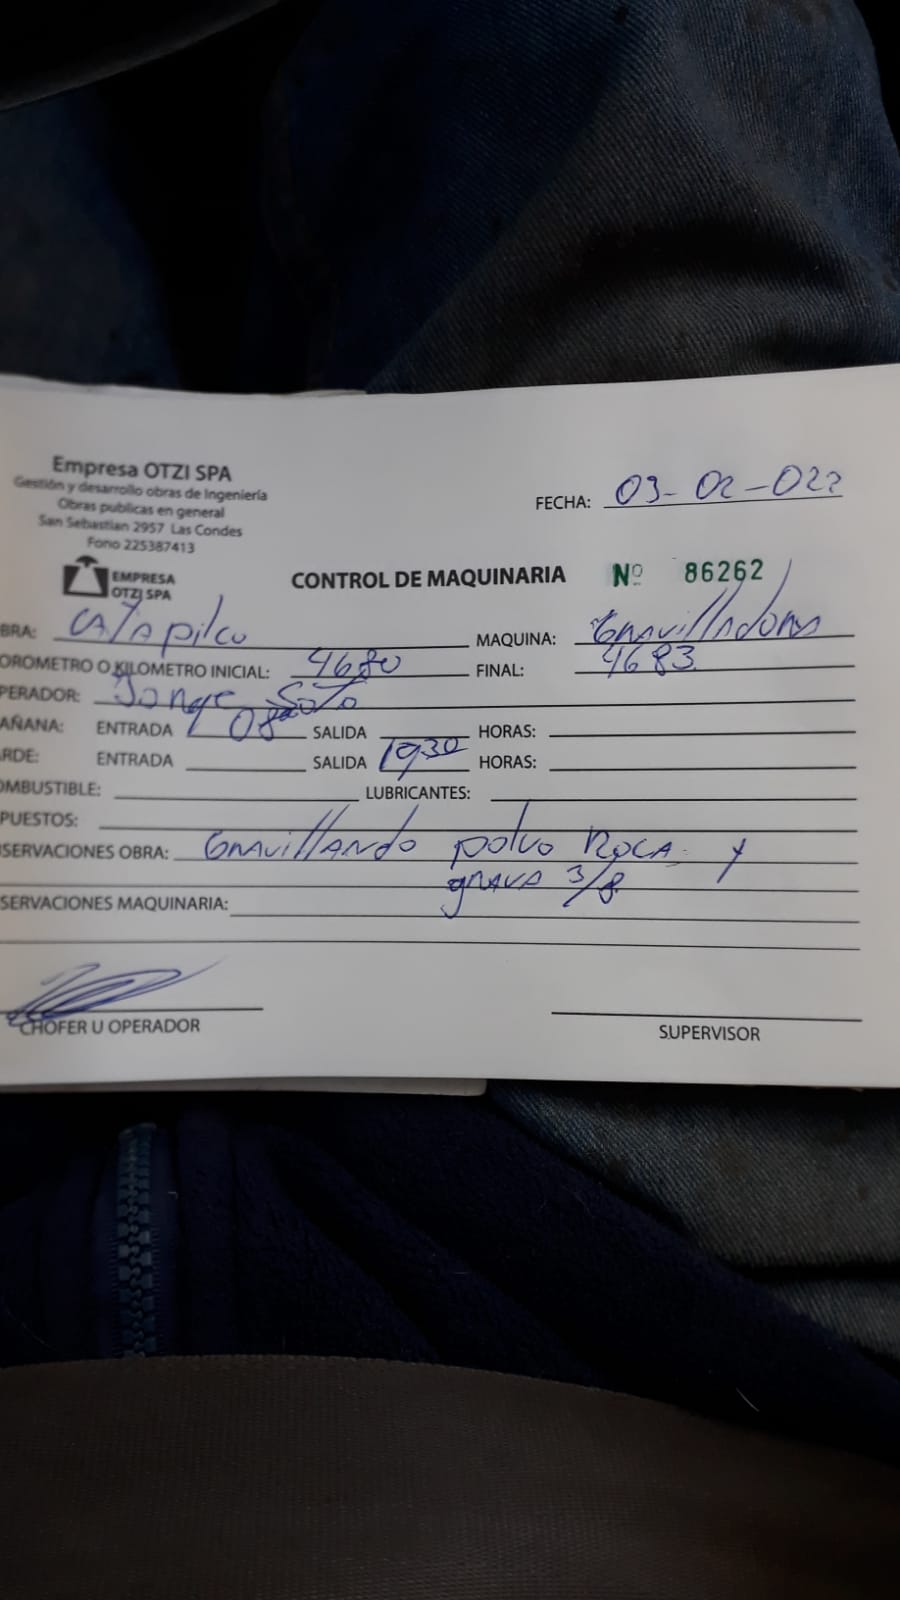 Empresa OTZI SPA
Gestión y desarrollo obras de Ingeniería
Obras publicas en general
San Sebastian 2957 Las Condes
Fono 225387413
EMPRESA
OTZI SPA
FECHA: 03-02-022
CONTROL DE MAQUINARIA Nº 86262
BRA: CATApilco MAQUINA: GRAvillADORA
OROMETRO O KILOMETRO INICIAL: 4680 FINAL: 4683
PERADOR: Jorge Soto
AÑANA: ENTRADA 0800 SALIDA HORAS:
ARDE: ENTRADA SALIDA 1930 HORAS:
OMBUSTIBLE: LUBRICANTES:
PUESTOS:
SERVACIONES OBRA: GRAvillANDo polvo ROCA y
gRAVA 3/8
SERVACIONES MAQUINARIA:
CHOFER U OPERADOR
SUPERVISOR